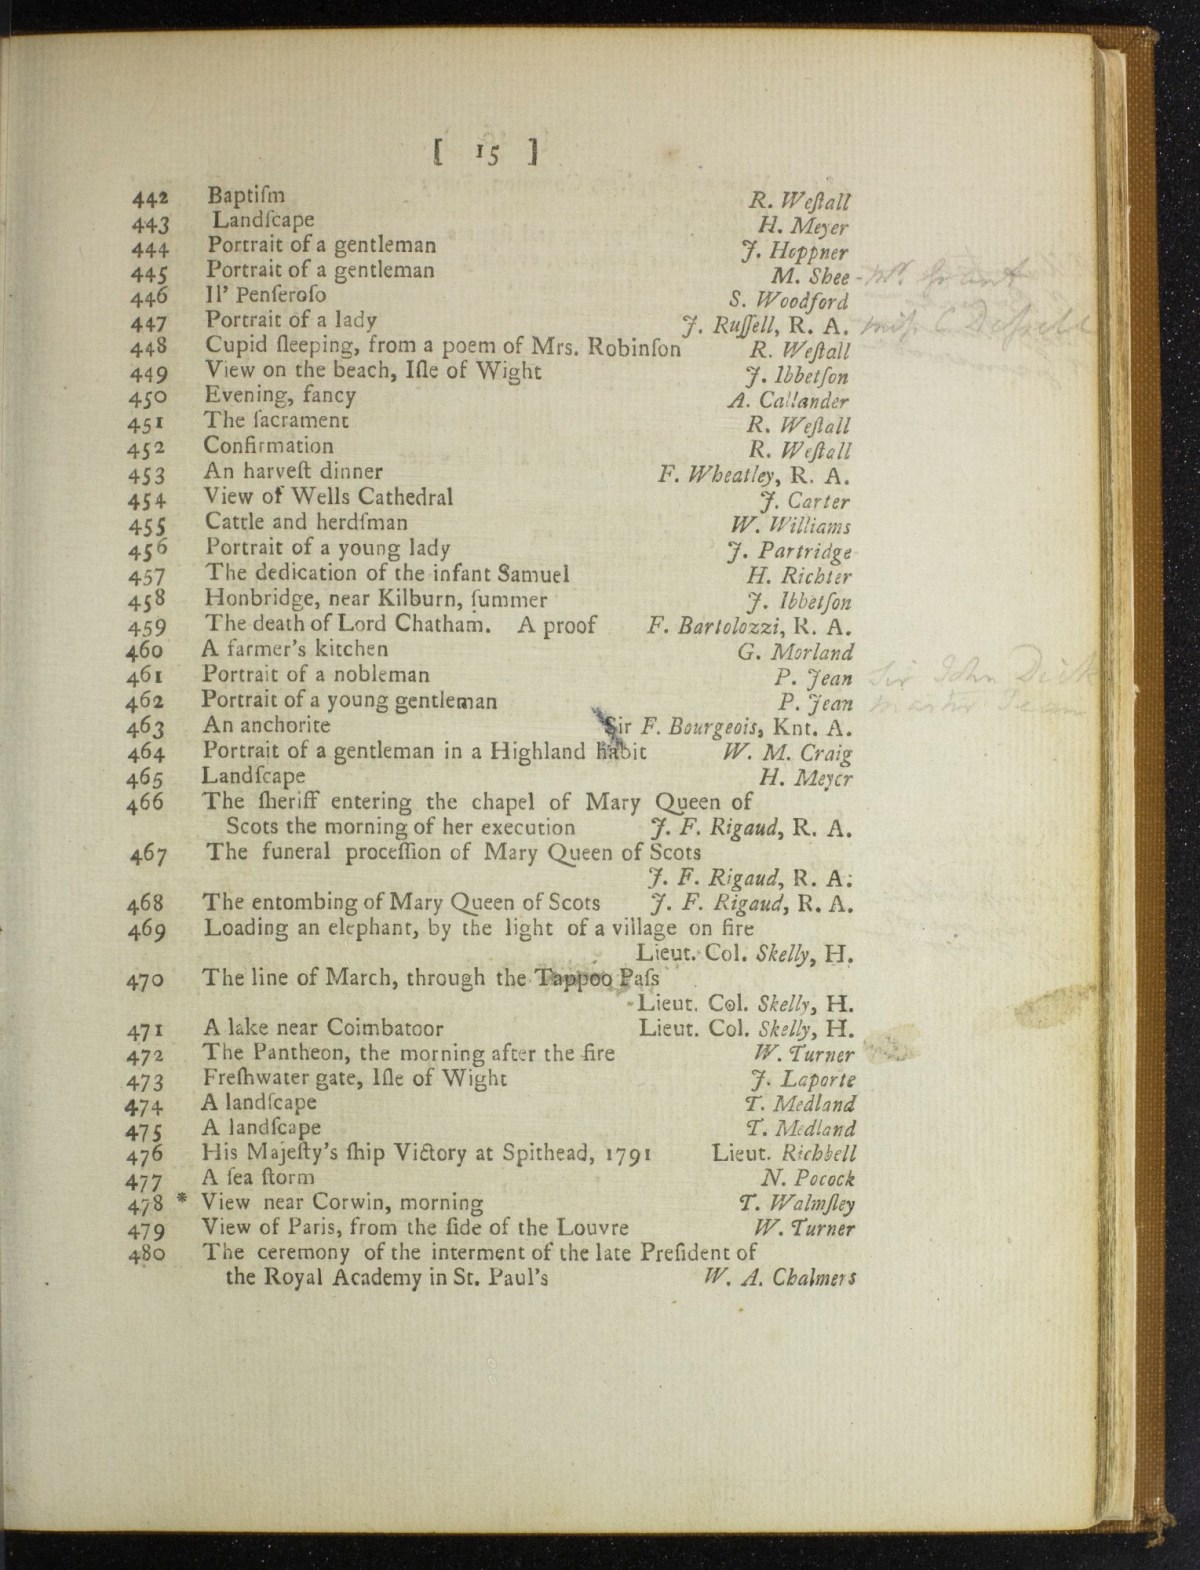 [ 15 ]
442 Baptiſm R. Weſtall
443 Landſcape H. Meyer
444 Portrait of a gentleman J. Hoppner
445 Portrait of a gentleman M. Shee - Mr. Grant
446 Il' Penſeroſo S. Woodford
447 Portrait of a lady J. Ruſſell, R. A. Miſs C
448 Cupid ſleeping, from a poem of Mrs. Robinſon R. Weſtall
449 View on the beach, Iſle of Wight J. Ibbetſon
450 Evening, fancy A. Callander
451 The ſacrament R. Weſtall
452 Confirmation R. Weſtall
453 An harveſt dinner F. Wheatley, R. A.
454 View of Wells Cathedral J. Carter
455 Cattle and herdſman W. Williams
456 Portrait of a young lady J. Partridge
457 The dedication of the infant Samuel H. Richter
458 Honbridge, near Kilburn, ſummer J. Ibbetſon
459 The death of Lord Chatham. A proof F. Bartolozzi, R. A.
460 A farmer's kitchen G. Morland
461 Portrait of a nobleman P. Jean Sir John Dick
462 Portrait of a young gentleman P. Jean Master Jean
463 An anchorite Sir F. Bourgeois, Knt. A.
464 Portrait of a gentleman in a Highland habit W. M. Craig
465 Landſcape H. Meyer
466 The ſheriff entering the chapel of Mary Queen of
Scots the morning of her execution J. F. Rigaud, R. A.
467 The funeral proceſſion of Mary Queen of Scots
J. F. Rigaud, R. A.
468 The entombing of Mary Queen of Scots J. F. Rigaud, R. A.
469 Loading an elephant, by the light of a village on fire
Lieut. Col. Skelly, H.
470 The line of March, through the Tappoo Paſs
Lieut. Col. Skelly, H.
471 A lake near Coimbatoor Lieut. Col. Skelly, H.
472 The Pantheon, the morning after the fire W. Turner
473 Freſhwater gate, Iſle of Wight J. Laporte
474 A landſcape T. Medland
475 A landſcape T. Medland
476 His Majeſty's ſhip Victory at Spithead, 1791 Lieut. Richbell
477 A ſea ſtorm N. Pocock
478 * View near Corwin, morning T. Walmſley
479 View of Paris, from the ſide of the Louvre W. Turner
480 The ceremony of the interment of the late Preſident of
the Royal Academy in St. Paul's W. A. Chalmers